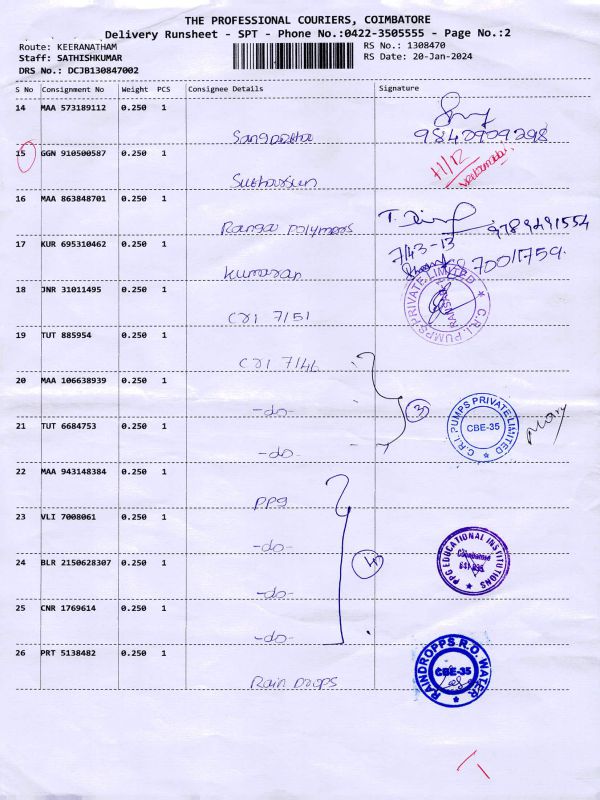 THE PROFESSIONAL COURIERS, COIMBATORE
Delivery Runsheet - SPT - Phone No.:0422-3505555 - Page No.:2
Route: KEERANATHAM
Staff: SATHISHKUMAR
DRS No.: DCJB130847002
RS No.: 1308470
RS Date: 20-Jan-2024
S No Consignment No Weight PCS Consignee Details Signature
14 MAA 573189112 0.250 1
9842909298
15 GGN 910500587 0.250 1
16 MAA 863848701 0.250 1
Ranga polymers 9789491554
17 KUR 695310462 0.250 1
7/43-13
Kumaran
C.R.I. PUMPS PRIVATE LIMITED
18 JNR 31011495 0.250 1
CRI 7/51
19 TUT 885954 0.250 1
CRI 7/46
20 MAA 106638939 0.250 1
-do-
3
C.R.I. PUMPS PRIVATE LIMITED
CBE-35
21 TUT 6684753 0.250 1
-do-
22 MAA 943148384 0.250 1
PPG
23 VLI 7008061 0.250 1
-do-
PPG EDUCATIONAL INSTITUTIONS
Coimbatore
641 035
24 BLR 2150628307 0.250 1
4
-do-
25 CNR 1769614 0.250 1
-do-
26 PRT 5138482 0.250 1
Rain Drops
RAINDROPPS R.O. WATER
CBE-35